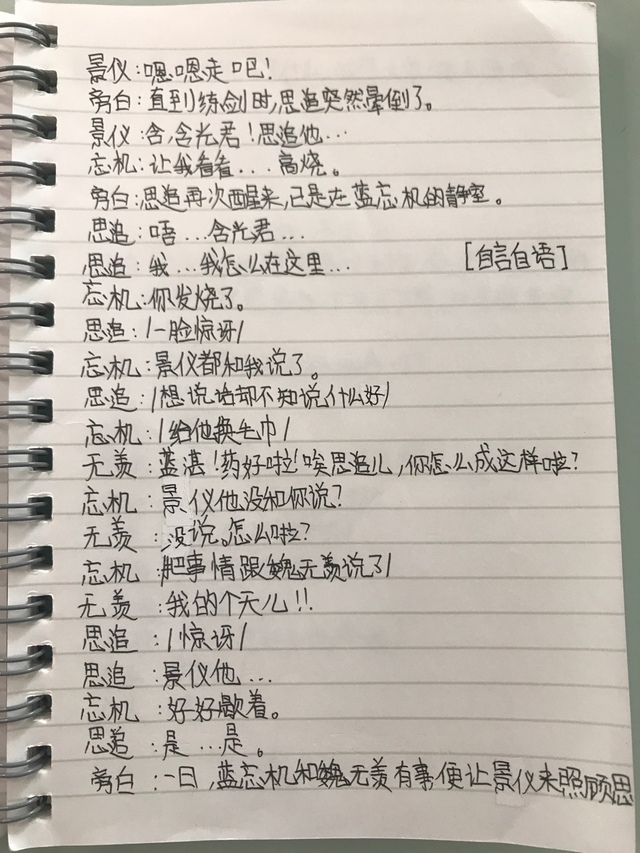 景仪:嗯嗯走吧!
旁白:直到练剑时,思追突然晕倒了。
景仪:含,含光君!思追他...
忘机:让我看看...高烧。
旁白:思追再次醒来,已是在蓝忘机的静室。
思追:唔...含光君...
思追:我...我怎么在这里... [自言自语]
忘机:你发烧了。
思追:/一脸惊讶/
忘机:景仪都和我说了。
思追:/想说话却不知说什么好/
忘机:/给他换毛巾/
无羡:蓝湛!药好啦!唉思追儿,你怎么成这样啦?
忘机:景仪他没和你说?
无羡:没说。怎么啦?
忘机:/把事情跟魏无羡说了/
无羡:我的个天儿!!
思追:/惊讶/
思追:景仪他...
忘机:好好歇着。
思追:是...是。
旁白:一日,蓝忘机和魏无羡有事便让景仪来照顾思